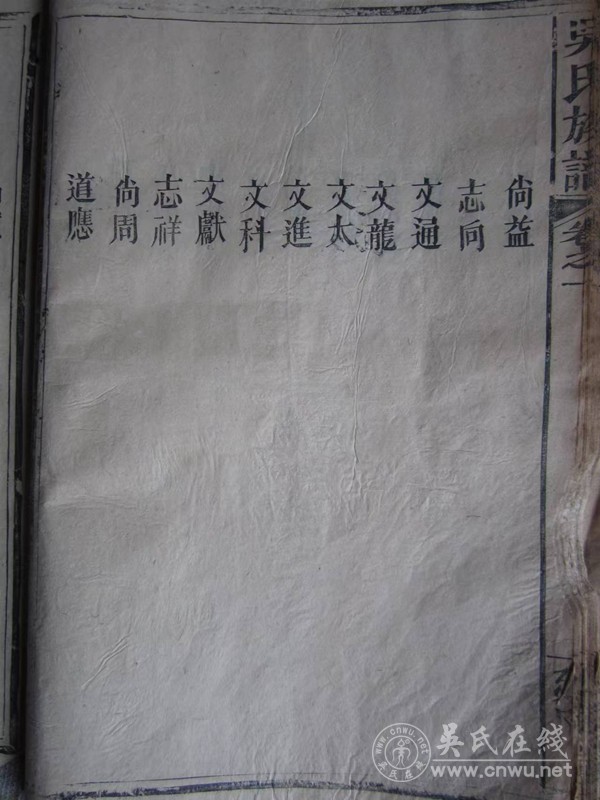 吳氏族譜
卷之一
尙益
志向
文通
文龍
文太
文進
文科
文獻
志祥
尙周
道應
吴氏在线
www.cnwu.net
www.cnwu.net